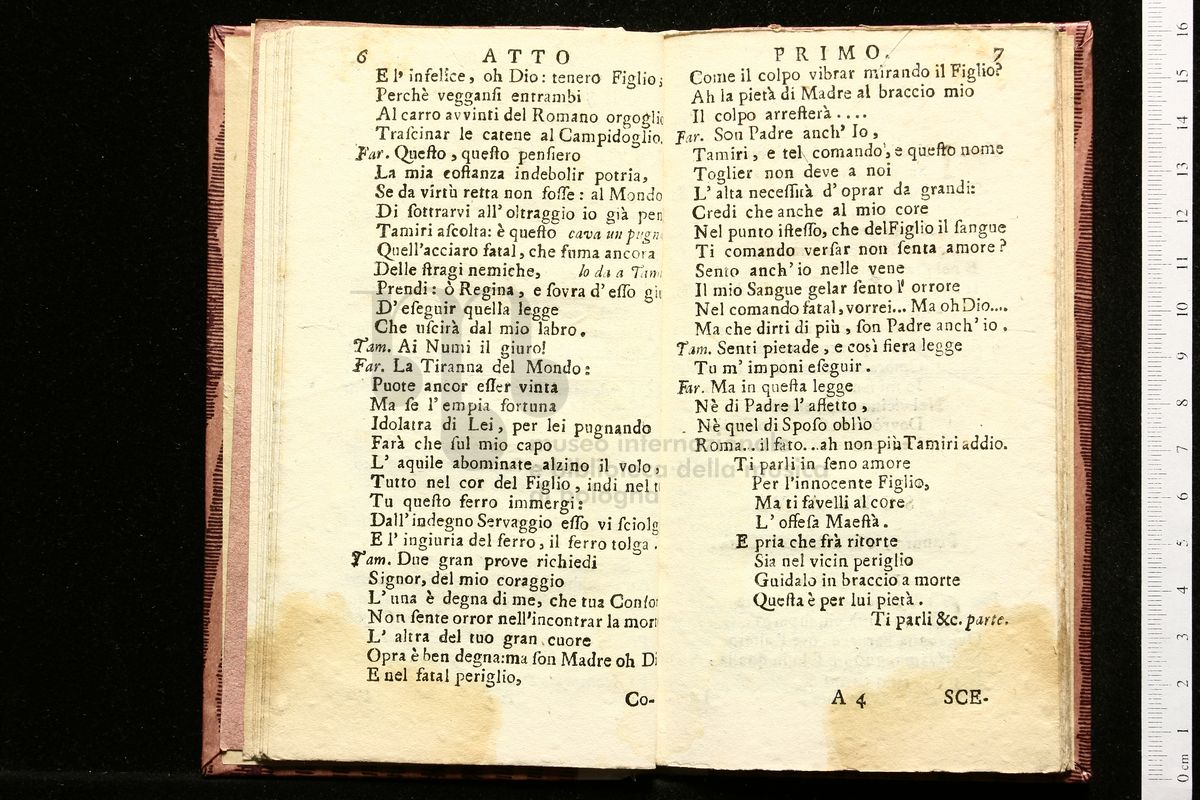 6 ATTO
E l' infelice, oh Dio: tenero Figlio;
Perchè vegganſi entrambi
Al carro avvinti del Romano orgoglio
Traſcinar le catene al Campidoglio.
Far. Queſto, queſto penſiero
La mia coſtanza indebolir potria,
Se da virtù retta non foſſe: al Mondo
Di ſottrarvi all' oltraggio io già pen
Tamiri aſcolta: è queſto cava un pugn
Quell'acciaro fatal, che fuma ancora
Delle ſtragi nemiche, lo da a Tam
Prendi: ò Regina, e ſovra d' eſſo giu
D' eſeguir quella legge
Che uſcirà dal mio labro.
Tam. Ai Numi il giuro!
Far. La Tiranna del Mondo:
Puote ancor eſſer vinta
Ma ſe l' empia fortuna
Idolatra di Lei, per lei pugnando
Farà che ſul mio capo
L' aquile abominate alzino il volo,
Tutto nel cor del Figlio, indi nel t
Tu queſto ferro immergi:
Dall' indegno Servaggio eſſo vi ſciolg
E l' ingiuria del ferro, il ferro tolga.
Tam. Due gran prove richiedi
Signor, del mio coraggio
L' una è degna di me, che tua Conſor
Non ſente orror nell'incontrar la mort
L' altra del tuo gran cuore
Opra è ben degna: ma ſon Madre oh Di
E nel fatal periglio,
Co-
PRIMO. 7
Come il colpo vibrar mirando il Figlio?
Ah la pietà di Madre al braccio mio
Il colpo arreſterà ....
Far. Son Padre anch' Io,
Tamiri, e tel comando, e queſto nome
Toglier non deve a noi
L' alta neceſſità d' oprar da grandi:
Credi che anche al mio core
Nel punto iſteſſo, che del Figlio il ſangue
Ti comando verſar non ſenta amore?
Sento anch' io nelle vene
Il mio Sangue gelar ſento l' orrore
Nel comando fatal, vorrei... Ma oh Dio....
Ma che dirti di più, ſon Padre anch' io.
Tam. Senti pietade, e così fiera legge
Tu m' imponi eſeguir.
Far. Ma in queſta legge
Nè di Padre l' affetto,
Nè quel di Spoſo oblìo
Roma... il fato... ah non più Tamiri addio.
Ti parli in ſeno amore
Per l'innocente Figlio,
Ma ti favelli al core
L' offeſa Maeſtà.
E pria che frà ritorte
Sia nel vicin periglio
Guidalo in braccio a morte
Queſta è per lui pietà.
Ti parli &c. parte.
A 4 SCE-
museo internazionale
e biblioteca della musica
di bologna
16
15
14
13
12
11
10
9
8
7
6
5
4
3
2
1
0 cm